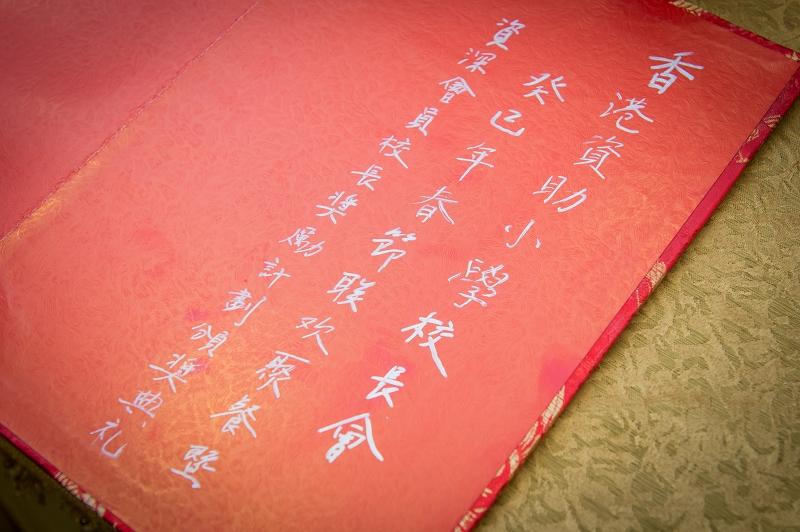 香港資助小學校長會
癸巳年春節联欢聚餐暨
資深會員校長奬勵計劃頒奬典礼